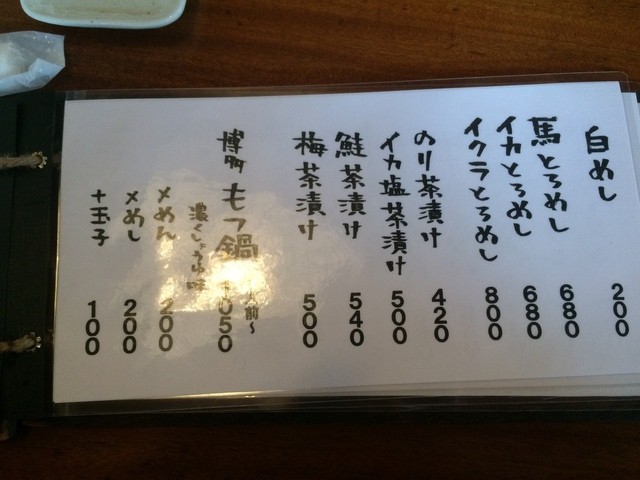 白めし 200
馬とろめし 680
イカとろめし 680
イクラとろめし 800
のり茶漬け 420
イカ塩茶漬け 500
鮭茶漬け 540
梅茶漬け 500
博多もつ鍋 050
人前～
濃くしょうゆ味
〆めん 200
〆めし 200
+玉子 100